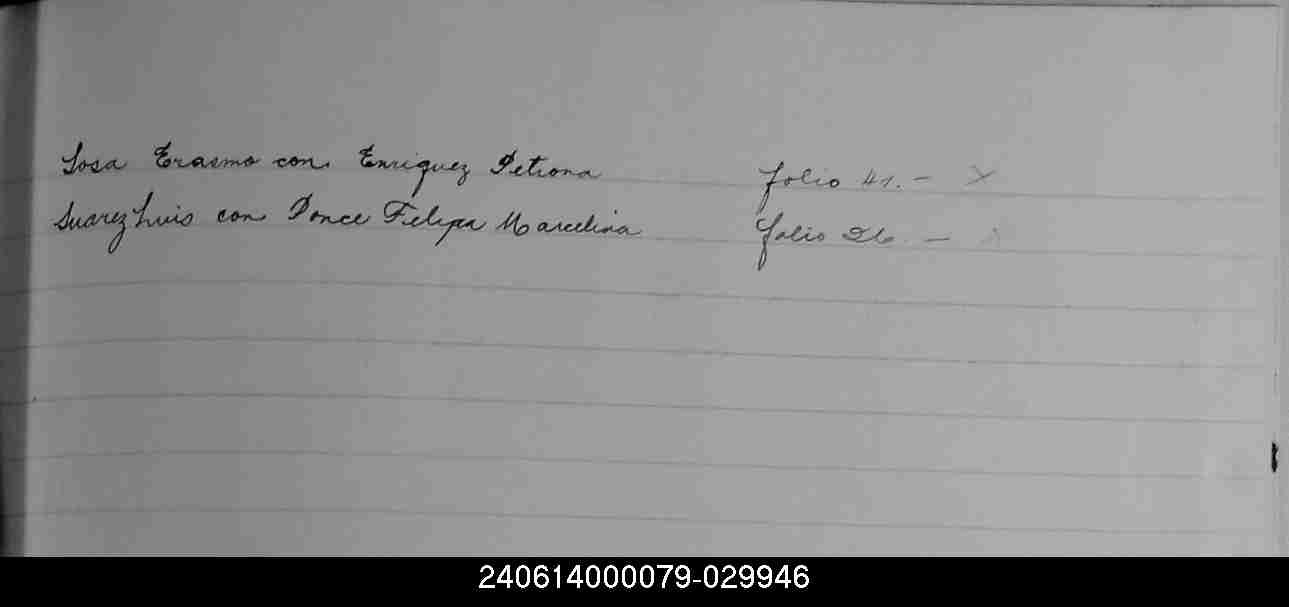 Sosa Erasmo con Enriquez Petrona folio 41. - X
Suarez Luis con Ponce Felipa Marcelina folio 26 - X
240614000079-029946